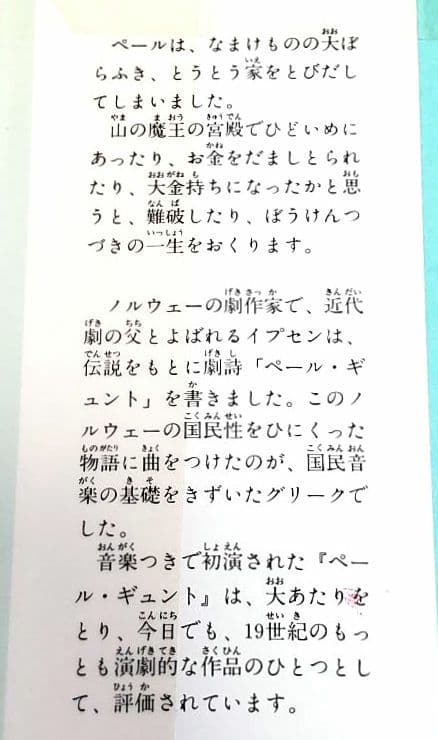 ペールは、なまけものの大ぼ
らふき、とうとう家をとびだし
てしまいました。
山の魔王の宮殿でひどいめに
あったり、お金をだましとられ
たり、大金持ちになったかと思
うと、難破したり、ぼうけんつ
づきの一生をおくります。
ノルウェーの劇作家で、近代
劇の父とよばれるイプセンは、
伝説をもとに劇詩「ペール・ギ
ュント」を書きました。このノ
ルウェーの国民性をひにくった
物語に曲をつけたのが、国民音
楽の基礎をきずいたグリークで
した。
音楽つきで初演された『ペー
ル・ギュント』は、大あたりを
とり、今日でも、19世紀のもっ
とも演劇的な作品のひとつとし
て、評価されています。